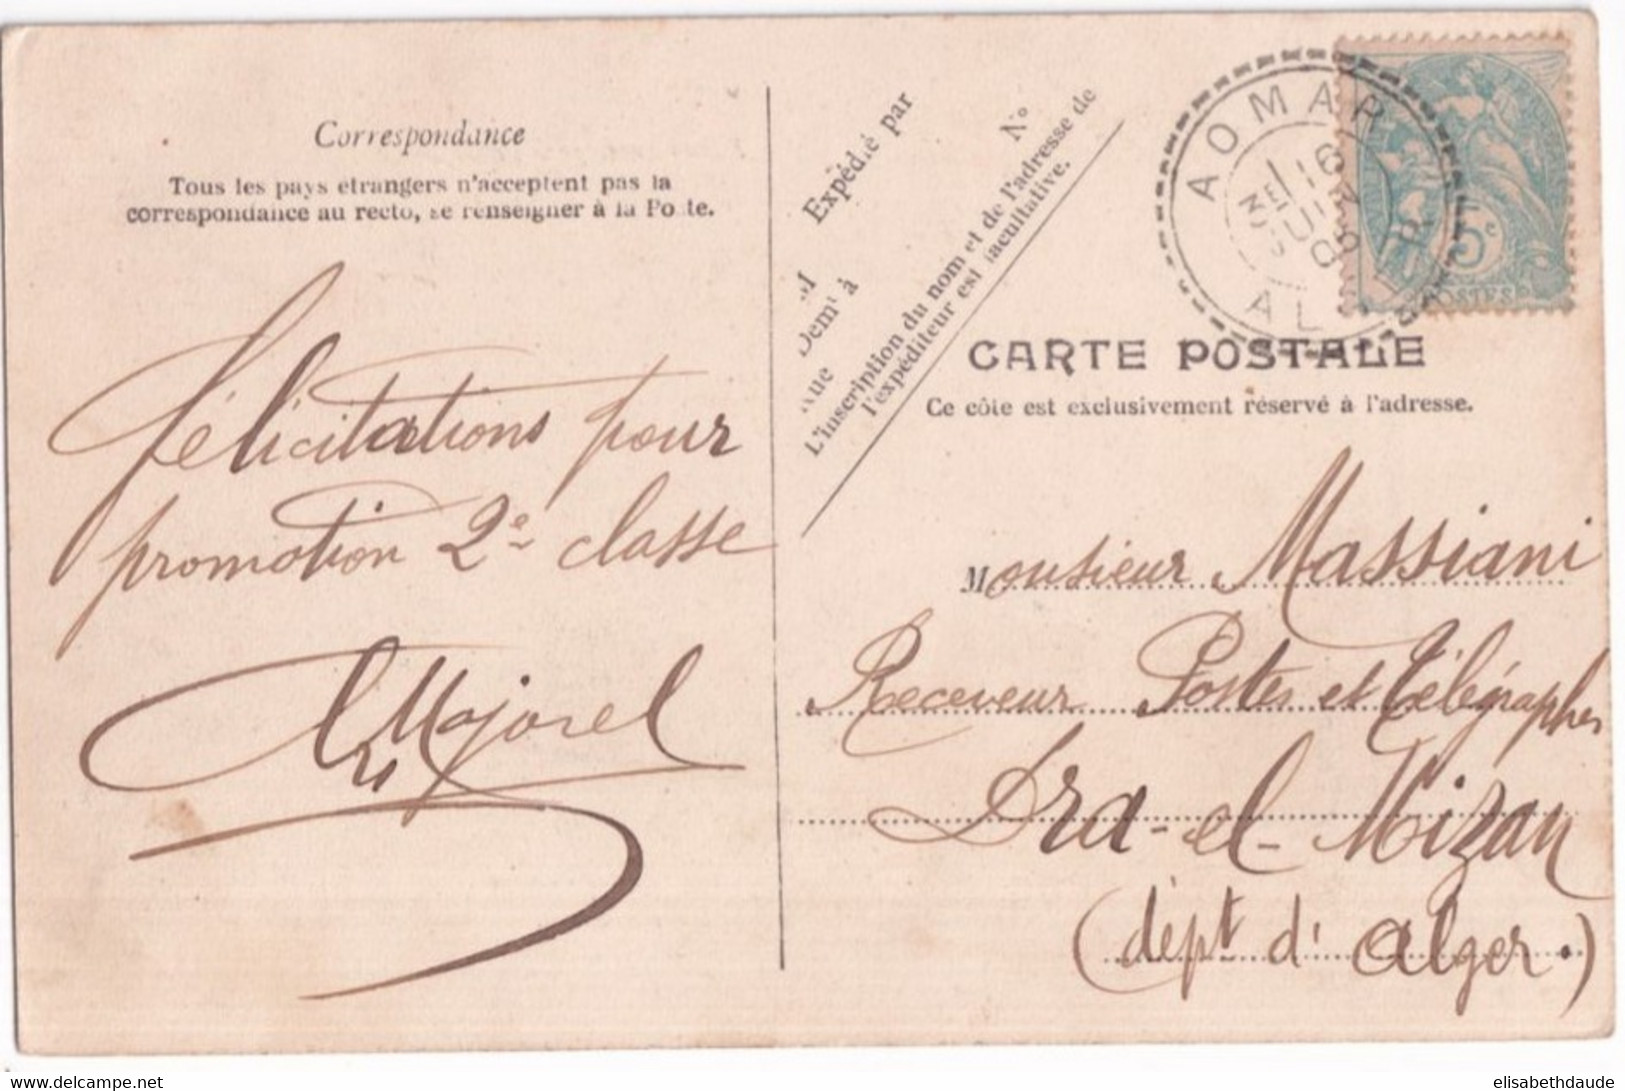 Correspondance
Tous les pays étrangers n'acceptent pas la
correspondance au recto, se renseigner à la Poste.
Félicitations pour
promotion 2e classe
Majorel
Expédié par
M
Dem^t à
Rue
N°
L'inscription du nom et de l'adresse de
l'expéditeur est facultative.
AOMAR
16
JUIL
08
AL
5c
POSTES
CARTE POSTALE
Ce côté est exclusivement réservé à l'adresse.
Monsieur Massiani
Receveur Postes et Télégraphes
Dra-el-Mizan
(dépt d'Alger.)
elisabethdaude